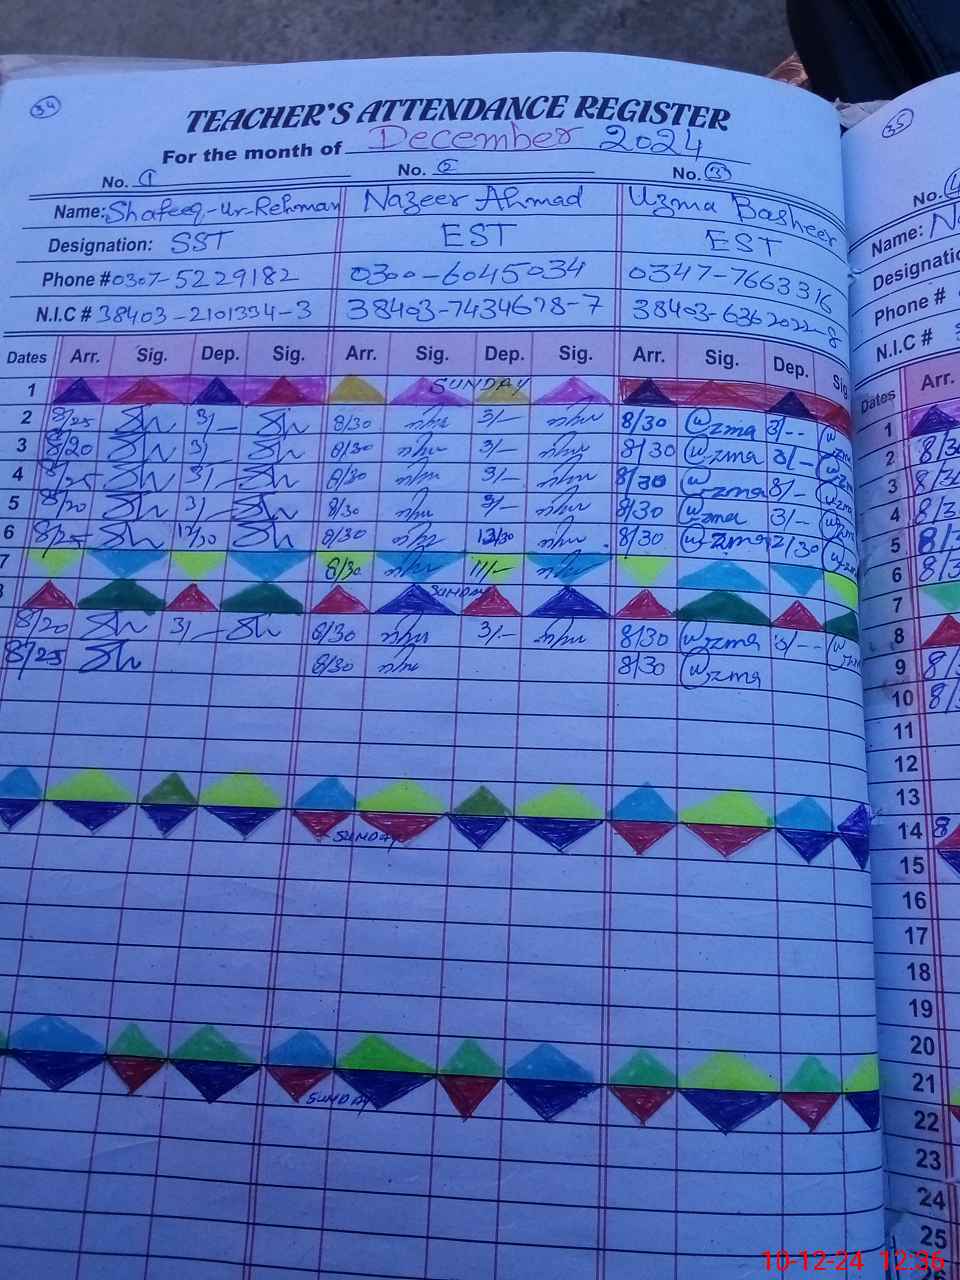 34
TEACHER'S ATTENDANCE REGISTER
For the month of December 2024
No. 1 No. 2 No. 3
Name: Shafeeq-Ur-Rehman Nazeer Ahmad Uzma Basheer
Designation: SST EST EST
Phone # 0307-5229182 0300-6045034 0347-7663316
N.I.C # 38403-2101334-3 38403-7434678-7 38403-6362022-8
Dates Arr. Sig. Dep. Sig. Arr. Sig. Dep. Sig. Arr. Sig. Dep. Sig
1 SUNDAY
2 8/25 3/- 8/30 3/- 8/30 Uzma 3/--
3 8/20 3/- 8/30 3/- 8/30 Uzma 3/-
4 8/25 3/- 8/30 3/- 8/30 Uzma 3/-
5 8/20 3/- 8/30 3/- 8/30 Uzma 3/-
6 8/25 12/30 8/30 12/30 8/30 Uzma 12/30
7 8/30 11/-
SUNDAY
8/20 3/- 8/30 3/- 8/30 Uzma 3/--
8/25 8/30 8/30 Uzma
SUNDAY
SUNDAY
35
No. 4
Name:
Phone #
N.I.C #
Dates Arr.
1
2 8/30
3
4
5
6
7
8
9
10
11
12
13
14
15
16
17
18
19
20
21
22
23
24
25
10-12-24 12:36